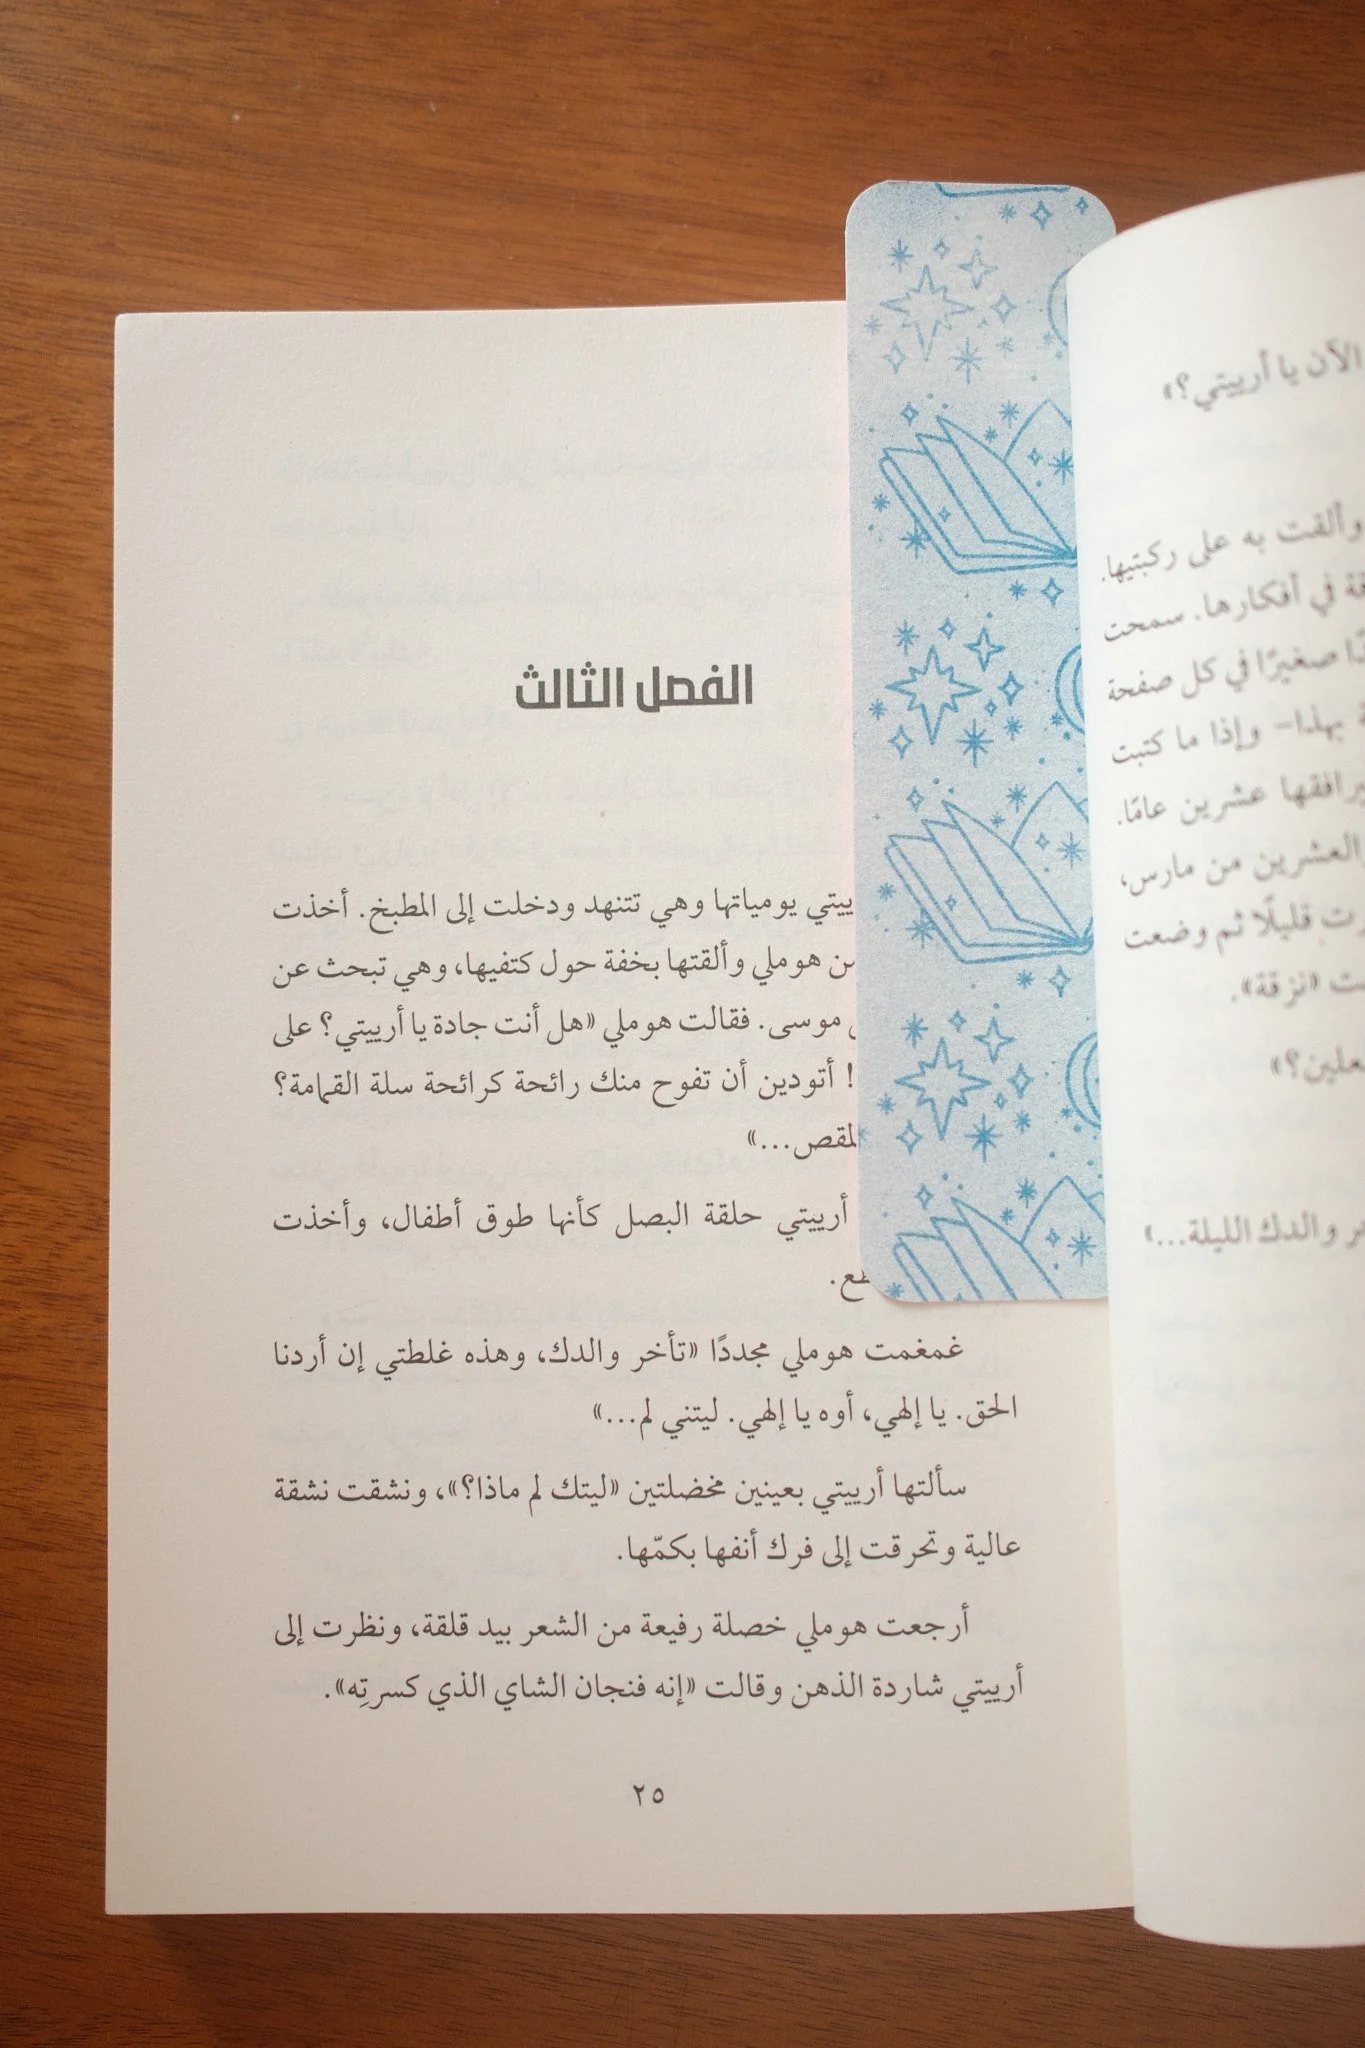 الآن يا أرييتي؟»
وألقت به على ركبتيها.
في أفكارها. سمحت
صغيرًا في كل صفحة
بهذا- وإذا ما كتبت
عشرين عامًا.
العشرين من مارس،
قليلًا ثم وضعت
«نزقة».
والدك الليلة...»
الفصل الثالث
يومياتها وهي تتنهد ودخلت إلى المطبخ. أخذت
هوملي وألقتها بخفة حول كتفيها، وهي تبحث عن
موسى. فقالت هوملي «هل أنت جادة يا أرييتي؟ على
! أتودين أن تفوح منك رائحة كرائحة سلة القمامة؟
لمقص...»
أرييتي حلقة البصل كأنها طوق أطفال، وأخذت
غمغمت هوملي مجددًا «تأخر والدك، وهذه غلطتي إن أردنا
الحق. يا إلهي، أوه يا إلهي. ليتني لم...»
سألتها أرييتي بعينين مخضلتين «ليتك لم ماذا؟»، ونشقت نشقة
عالية وتحرقت إلى فرك أنفها بكمّها.
أرجعت هوملي خصلة رفيعة من الشعر بيد قلقة، ونظرت إلى
أرييتي شاردة الذهن وقالت «إنه فنجان الشاي الذي كسرتِه».
٢٥